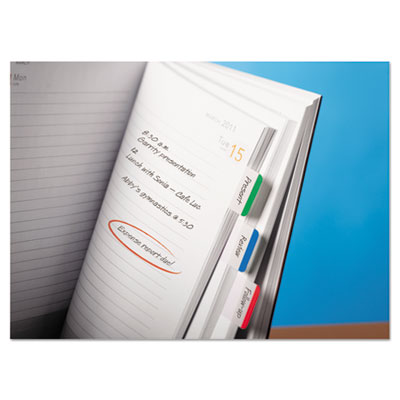 Mon
March 2011
Tue 15
8:30 a.m.
Garrity presentation
12
Lunch with Sonia – Cafe Luc
Abby's gymnastics @ 5:30
Expense report due!
Present
Review
Follow-up